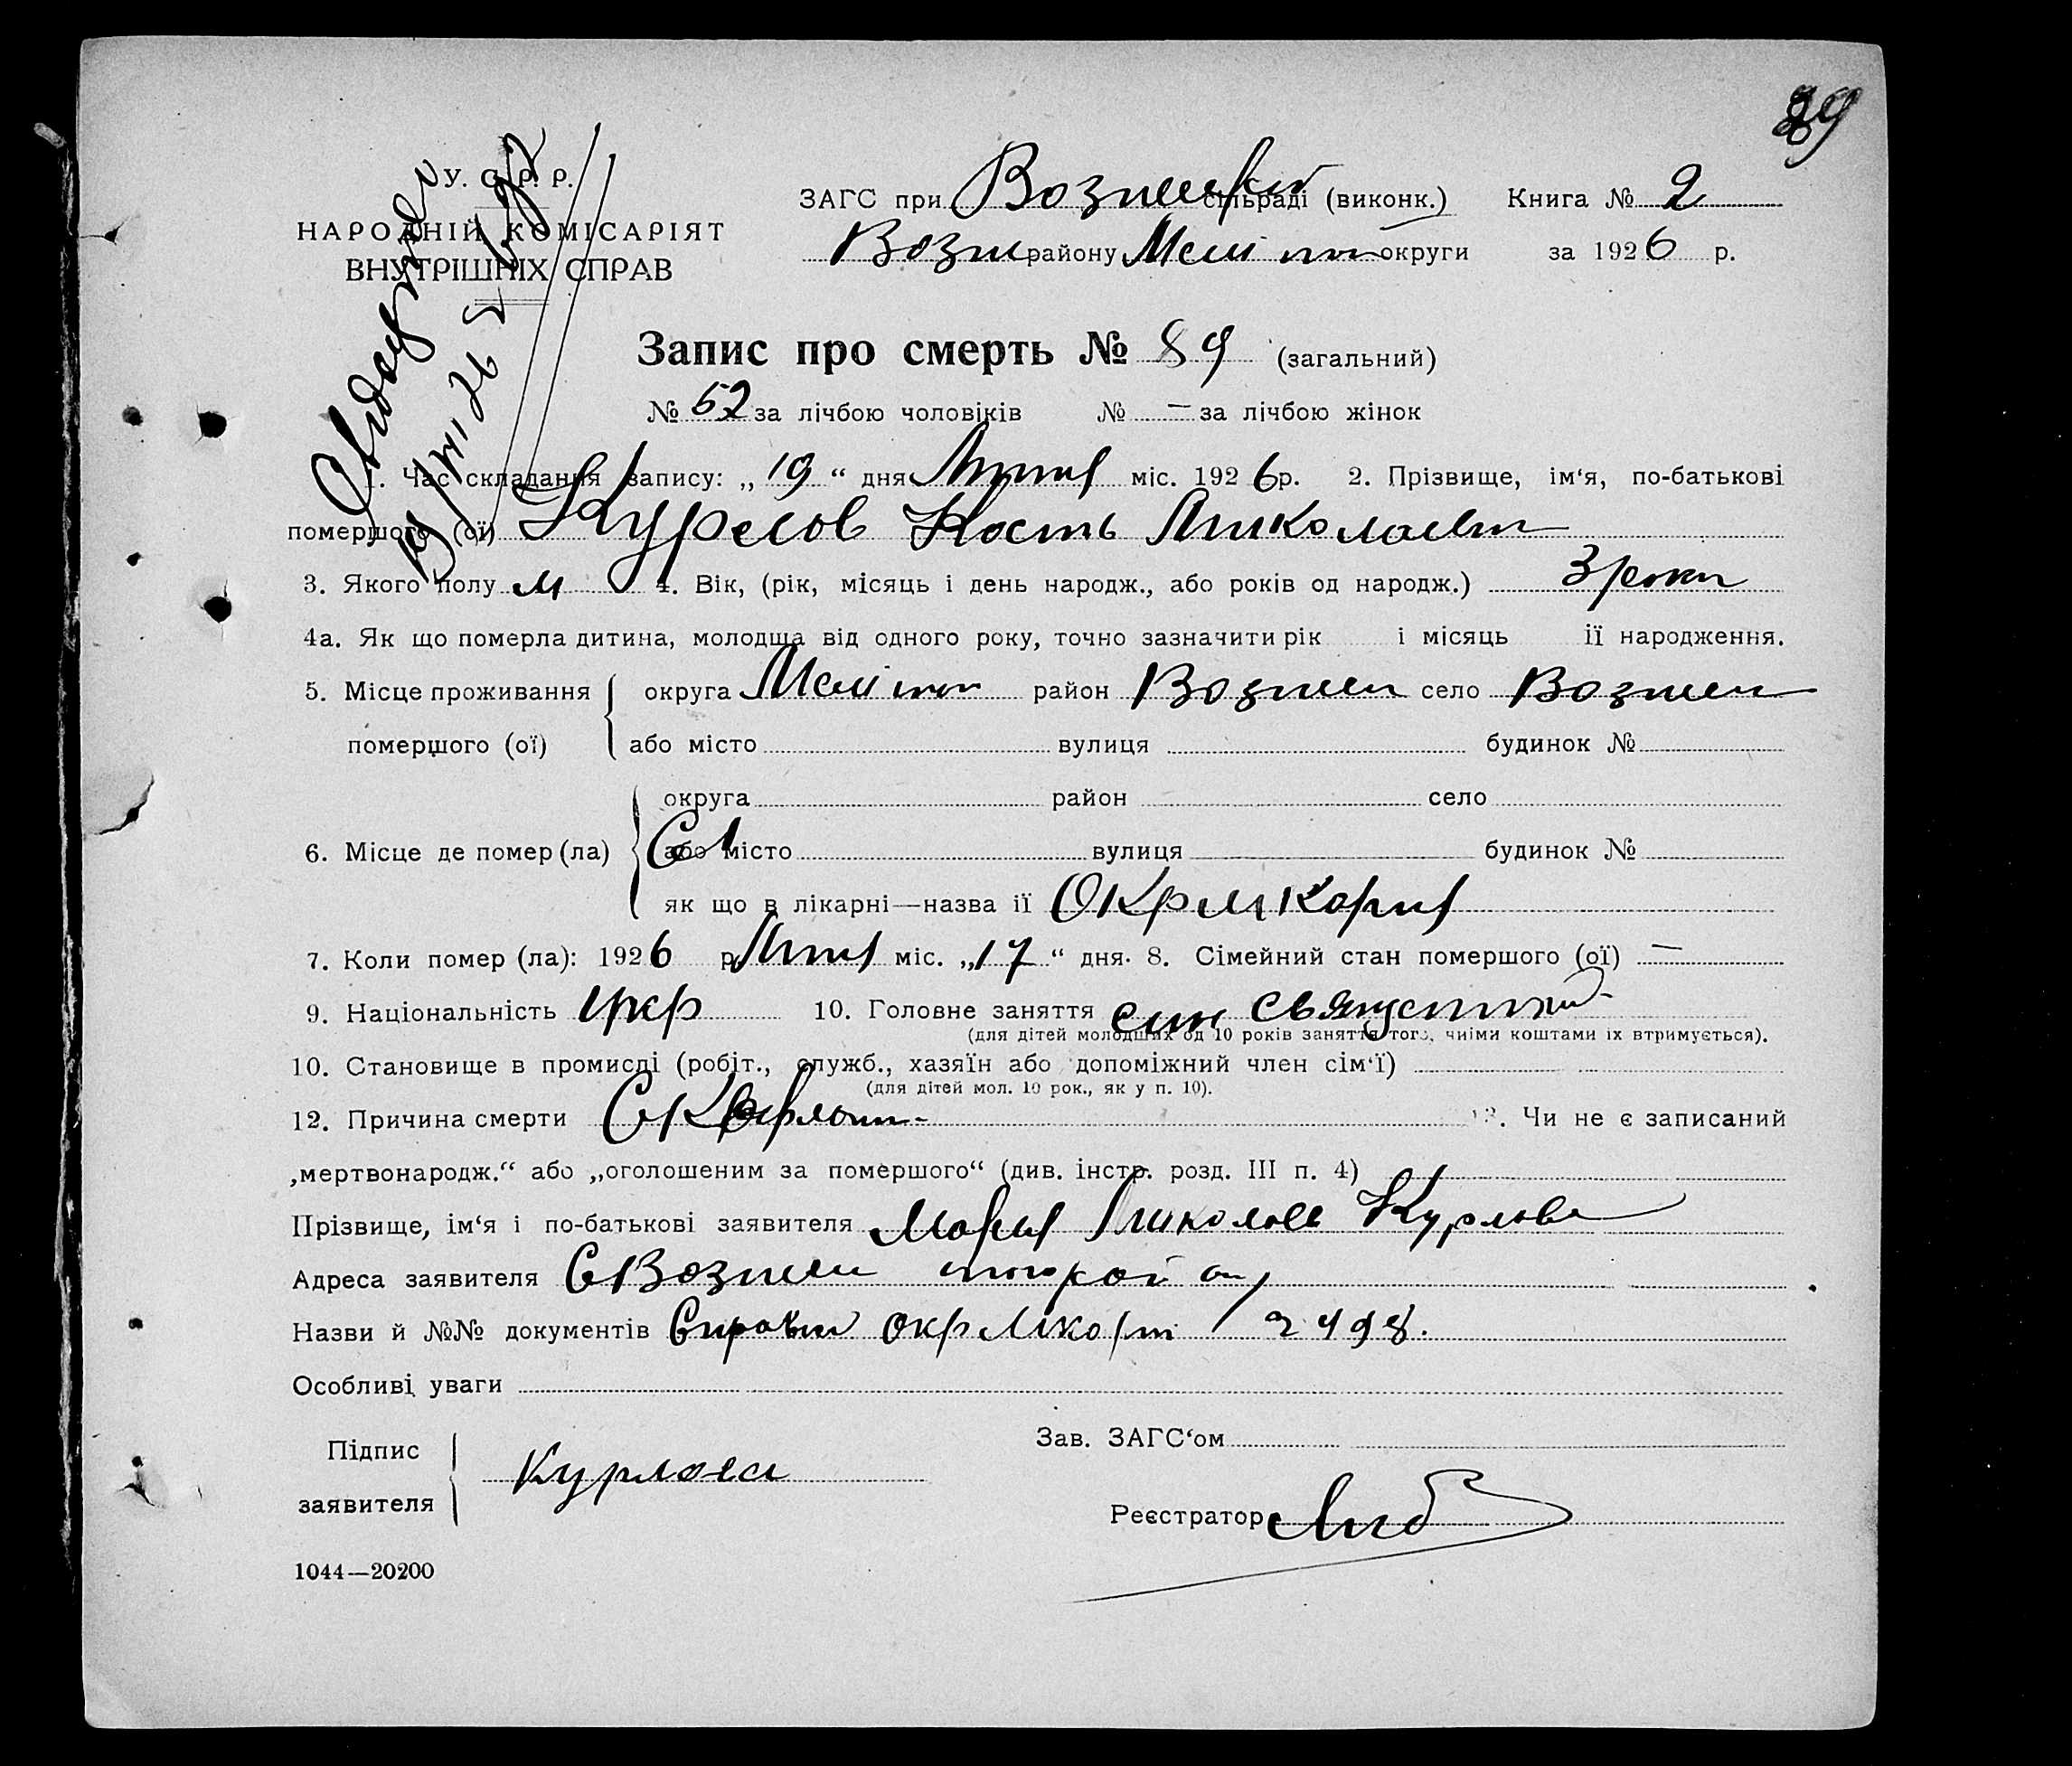 89
У. С. Р. Р.
НАРОДНІЙ КОМІСАРІЯТ
ВНУТРІШНІХ СПРАВ
ЗАГС при сільраді (виконк.) Книга № 2
Возн району Меліт округи за 1926 р.
Запис про смерть № 89 (загальний)
№ 52 за лічбою чоловіків № — за лічбою жінок
1. Час складання запису: „19“ дня міс. 1926 р. 2. Прізвище, ім‘я, по-батькові
помершого (ої) Курлов Кость Миколаев
3. Якого полу м 4. Вік, (рік, місяць і день народж., або років од народж.) 3 роки
4а. Як що померла дитина, молодща від одного року, точно зазначити рік і місяць ії народження.
5. Місце проживання округа Меліт район Вознесен село Вознесен
помершого (ої) або місто вулиця будинок №
округа район село
6. Місце де помер (ла) або місто вулиця будинок №
як що в лікарні—назва ії
7. Коли помер (ла): 1926 р. міс. „17“ дня. 8. Сімейний стан помершого (ої) —
9. Національність укр 10. Головне заняття син
(для дітей молодших од 10 років заняття того, чиїми коштами їх втримується).
10. Становище в промислі (робіт., служб., хазяїн або допоміжний член сім‘ї)
(для дітей мол. 10 рок., як у п. 10).
12. Причина смерти 13. Чи не є записаний
„мертвонародж.“ або „оголошеним за помершого“ (див. інстр. розд. III п. 4)
Прізвище, ім‘я і по-батькові заявителя Мария Миколаев Курлова
Адреса заявителя С Вознесен
Назви й №№ документів 2498.
Особливі уваги
Підпис Зав. ЗАГС‘ом
заявителя Курлова
Реєстратор
1044—20200